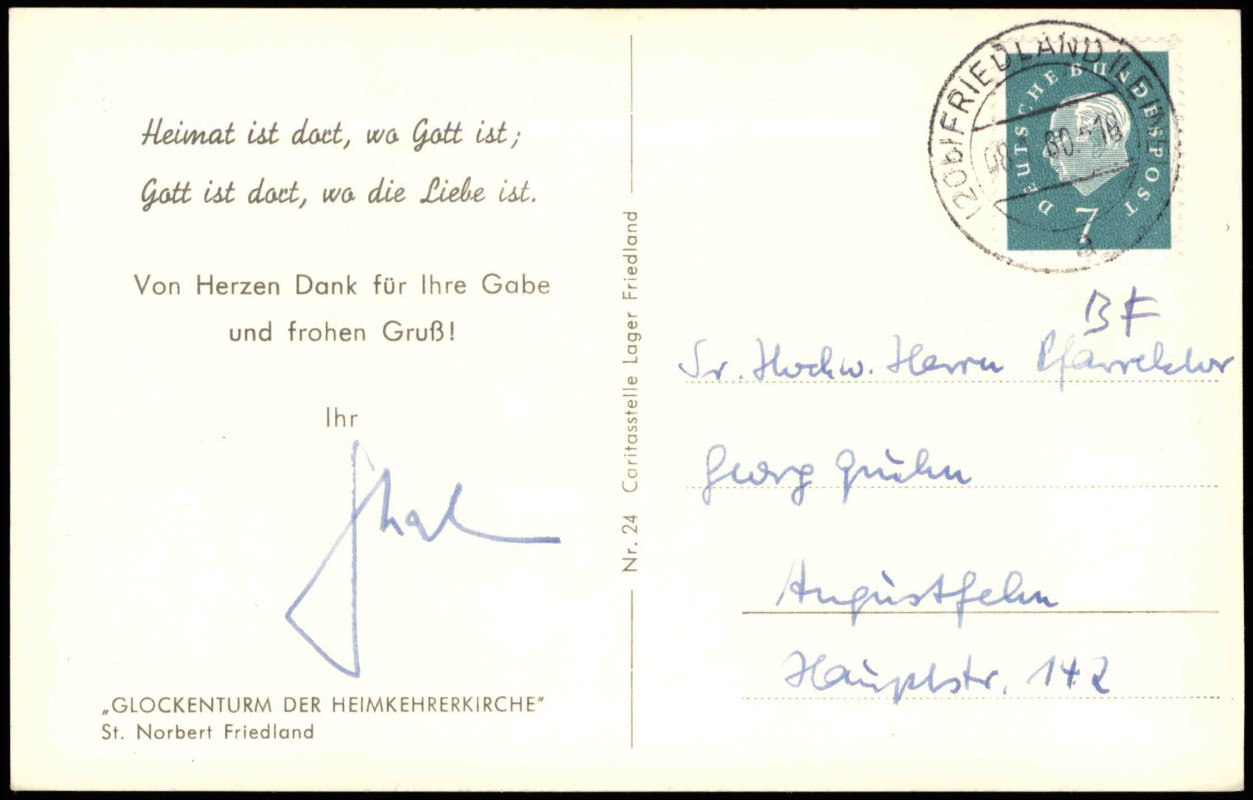 Heimat ist dort, wo Gott ist;
Gott ist dort, wo die Liebe ist.
Von Herzen Dank für Ihre Gabe
und frohen Gruß!
Ihr
„GLOCKENTURM DER HEIMKEHRERKIRCHE“
St. Norbert Friedland
Nr. 24 Caritasstelle Lager Friedland
(20b) FRIEDLAND (LEINE)
60.-18
a
DEUTSCHE BUNDESPOST
7
BF
Sr. Hochw. Herrn Pfarrektor
Georg
Augustfehn
Hauptstr. 142